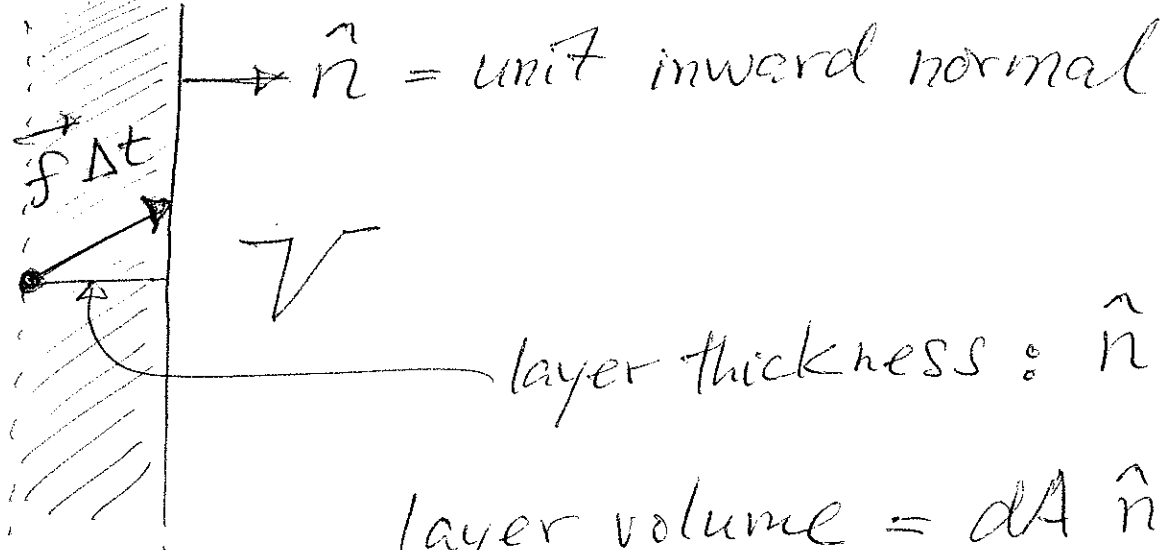 n̂ = unit inward normal
f⃗ Δt
V
layer thickness : n̂
layer volume = dA n̂